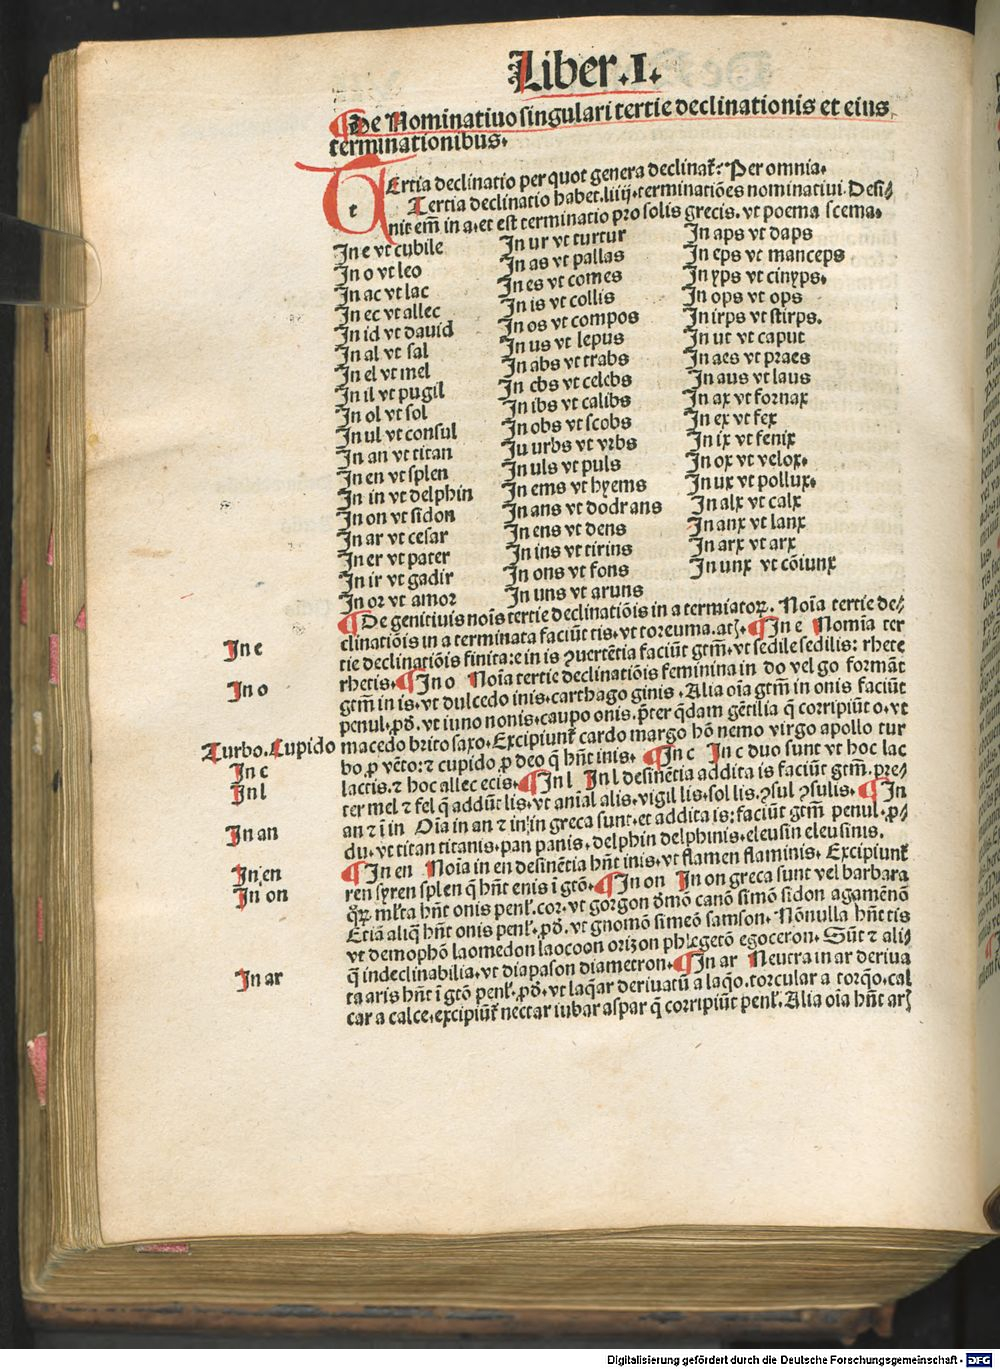 Liber .I.
¶De Nominatiuo singulari tertie declinationis et eius
terminationibus.
tErtia declinatio per quot genera declinat̃: Per omnia.
Tertia declinatio habet .liiij. terminatiões nominatiui. Desi⸗
nit em̃ in a. et est terminatio pro solis grecis. vt poema scema.
In e vt cubile
In o vt leo
In ac vt lac
In ec vt allec
In id vt dauid
In al vt sal
In el vt mel
In il vt pugil
In ol vt sol
In ul vt consul
In an vt titan
In en vt splen
In in vt delphin
In on vt sidon
In ar vt cesar
In er vt pater
In ir vt gadir
In or vt amor
In ur vt turtur
In as vt pallas
In es vt comes
In is vt collis
In os vt compos
In us vt lepus
In abs vt trabs
In ebs vt celebs
In ibs vt calibs
In obs vt scobs
Iu urbs vt vrbs
In uls vt puls
In ems vt hyems
In ans vt dodrans
In ens vt dens
In ins vt tirins
In ons vt fons
In uns vt aruns
In aps vt daps
In eps vt manceps
In yps vt cinyps.
In ops vt ops
In irps vt stirps.
In ut vt caput
In aes vt praes
In aus vt laus
In ax vt fornax
In ex vt fex
In ix vt fenix
In ox vt velox.
In ux vt pollux.
In alx vt calx
In anx vt lanx
In arx vt arx
In unx vt cõiunx
¶De genitiuis noĩs tertie declinatiõis in a termiatoꝝ. Noĩa tertie de⸗
clinatiõis in a terminata faciũt tis. vt toreuma.atꝭ. ¶In e Nomĩa ter
In e
tie declinatiõis finita: e in is ꝯuertẽtia faciũt gtm̃. vt sedile sedilis: rhete
rhetis. ¶In o Noĩa tertie declinatiõis feminina in do vel go formãt
In o
gtm̃ in is. vt dulcedo inis. carthago ginis. Alia oĩa gtm̃ in onis faciũt
penul. ꝓd̃. vt iuno nonis. caupo onis. p̃ter q̃dam gẽtilia q̃ corripiũt o. vt
Turbo. Cupido
macedo brito saxo. Excipiunt̃ cardo margo hõ nemo virgo apollo tur
bo ꝓ vẽto: ⁊ cupido ꝓ deo q̃ hñt inis. ¶In c In c duo sunt vt hoc lac
In c
lactis. ⁊ hoc allec ecis. ¶In l In l desinẽtia addita is faciũt gtm̃. pre⸗
In l
ter mel ⁊ fel q̃ addũt lis. vt anĩal alis. vigil lis. sol lis. ꝯsul ꝯsulis. ¶In
an ⁊ ĩ in Oĩa in an ⁊ in in greca sunt. et addita is: faciũt gtm̃ penul. ꝓ⸗
In an
du. vt titan titanis. pan panis. delphin delphinis. eleusin eleusinis.
¶In en Noĩa in en desinẽtia hñt inis. vt flamen flaminis. Excipiunt̃
In en
ren syren splen q̃ hñt enis ĩ gtõ. ¶In on In on greca sunt vel barbara
In on
qͦꝝ ml̃ta hñt onis penl̃. cor. vt gorgon dm̃õ canõ simõ sidon agamẽnõ
Etiã aliq̃ hñt onis penl̃. ꝓd̃. vt gnomõ simeõ samson. Nõnulla hñt tis
vt demophõ laomedon laocoon orizon phlegetõ egoceron. Sũt ⁊ ali⸗
q̃ indeclinabilia. vt diapason diametron. ¶In ar Neutra in ar deriua
In ar
ta aris hñt ĩ gtõ penl̃. ꝓd̃. vt laq̃ar deriuatũ a laq̃o. torcular a torq̃o. cal
car a calce. excipiũt̃ nectar iubar aspar q̃ corripiũt penl̃. Alia oĩa hñt arꝭ
Digitalisierung gefördert durch die Deutsche Forschungsgemeinschaft - DFG